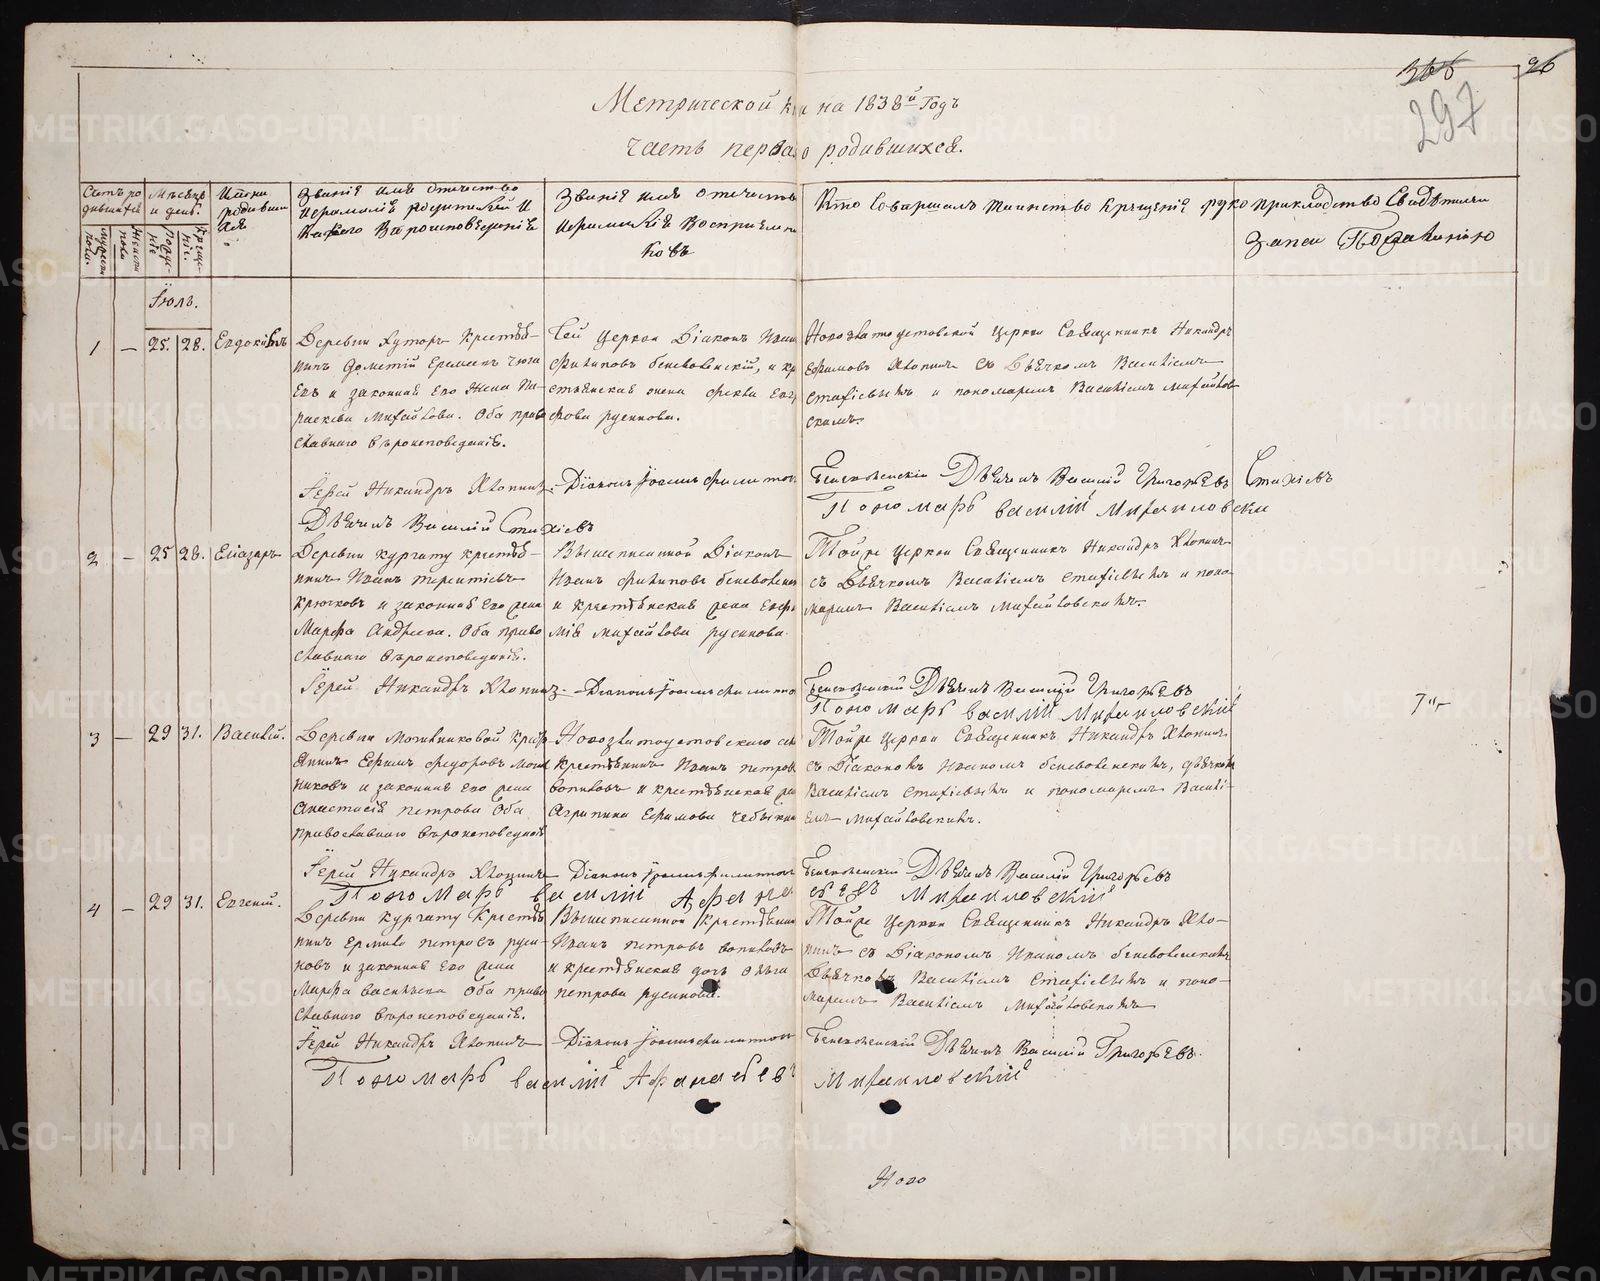 366 96
297
Метрической кни на 1838й Годъ
часть первая о родившихся.
Счетъ родившихся
мужеска пола.
женска пола
Мѣсяцъ и день.
рожденіе
крещеніе.
Имена родившихся
Званіе имя отечество
и фамилія родителей и
какого вѣроисповѣданія
Званіе имя отечество
и фамилія воспріемниковъ
Кто совершалъ таинство крещенія
рукоприкладство свидѣтелей
записи по желанію
Іюль.
1 — 25. 28. Евдокимъ
Деревни Хуторъ крестья-
нинъ Дометій
Евъ и законная его жена Па-
раскева Михайлова. Оба право
славнаго вѣроисповеданія.
Сей церкви Діаконъ Иванъ
Филиповъ Беневоленскій, и кр
стьянская жена Фекла
Русинова.
Новозлатоустовской церкви Священникъ Никандръ
Ефимовъ Хлопинъ съ Дьячкомъ Василіемъ
Стахіевымъ и пономаремъ Василіемъ Михайлов
скимъ.
Іерей Никандръ Хлопинъ. Діаконъ Іоаннъ Филиппов Беневоленскій Дьячекъ Василій Григорьевъ Стахіевъ
Пономарь василий Михаиловски
Дьячекъ Василій Стахіевъ
2 — 25 28. Елиазаръ
Деревни Кургату крестья-
нинъ Иванъ Терентьевъ
Крючковъ и законная его жена
Марфа Андреева. Оба право
славнаго вѣроисповеданія.
Вышеписанной Діаконъ
Иванъ Филиповъ Беневолен
и крестьянская жена Евфи
мія Михайлова Русинова.
Тойже церкви Священникъ Никандръ Хлопинъ
съ Дьячкомъ Василіемъ Стахіевымъ и поно-
маремъ Василіемъ Михайловскимъ.
Іерей Никандръ Хлопинъ. — Діаконъ Іоаннъ Филиппо Беневоленскій Дьячекъ Василій Григорьевъ
Пономарь василий Михаиловский
3 — 29 31. Василій.
Деревни Мотинниковой крест
янинъ Ефимъ Федоровъ
никовъ и законная его жена
Анастасія Петрова Оба
православнаго вѣроисповеданія
Новозлатоустовскаго села
крестьянинъ Иванъ Петровъ
Вопиловъ и крестьянская же
Агрипина Ефимова
Тойже церкви Священникъ Никандръ Хлопинъ
съ Діакономъ Иваномъ Беневоленскимъ, дьячкомъ
Василіемъ Стахіевымъ и пономаремъ Василі-
емъ Михайловскимъ.
Іерей Никандръ Хлопинъ Діаконъ Іоаннъ Филиппов Беневоленскій Дьячекъ Василій Григорьевъ
Пономарь василий Афанасьевъ Михаиловский
4 — 29 31. Евгений.
Деревни Кургату крестья
нинъ Ермило Петровъ Руси-
новъ и законная его жена
Марфа Васильева Оба право
славнаго вѣроисповеданія.
Вышеписанной крестьянин
Иванъ Петровъ Вопиловъ
и крестьянская дочь Ольга
Петрова Русинова.
Тойже церкви Священникъ Никандръ Хло-
пинъ съ Діакономъ Иваномъ Беневоленскимъ
Дьячкомъ Василіемъ Стахіевымъ и поно-
маремъ Василіемъ Михайловскимъ
Іерей Никандръ Хлопинъ Діаконъ Іоаннъ Филиппов Беневоленскій Дьячекъ Василій Григорьевъ.
Пономарь василий Афанасьевъ Михаиловский
Ново
METRIKI.GASO-URAL.RU